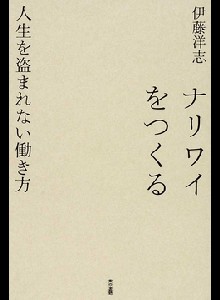 伊藤洋志
ナリワイ
をつくる
人生を盗まれない働き方